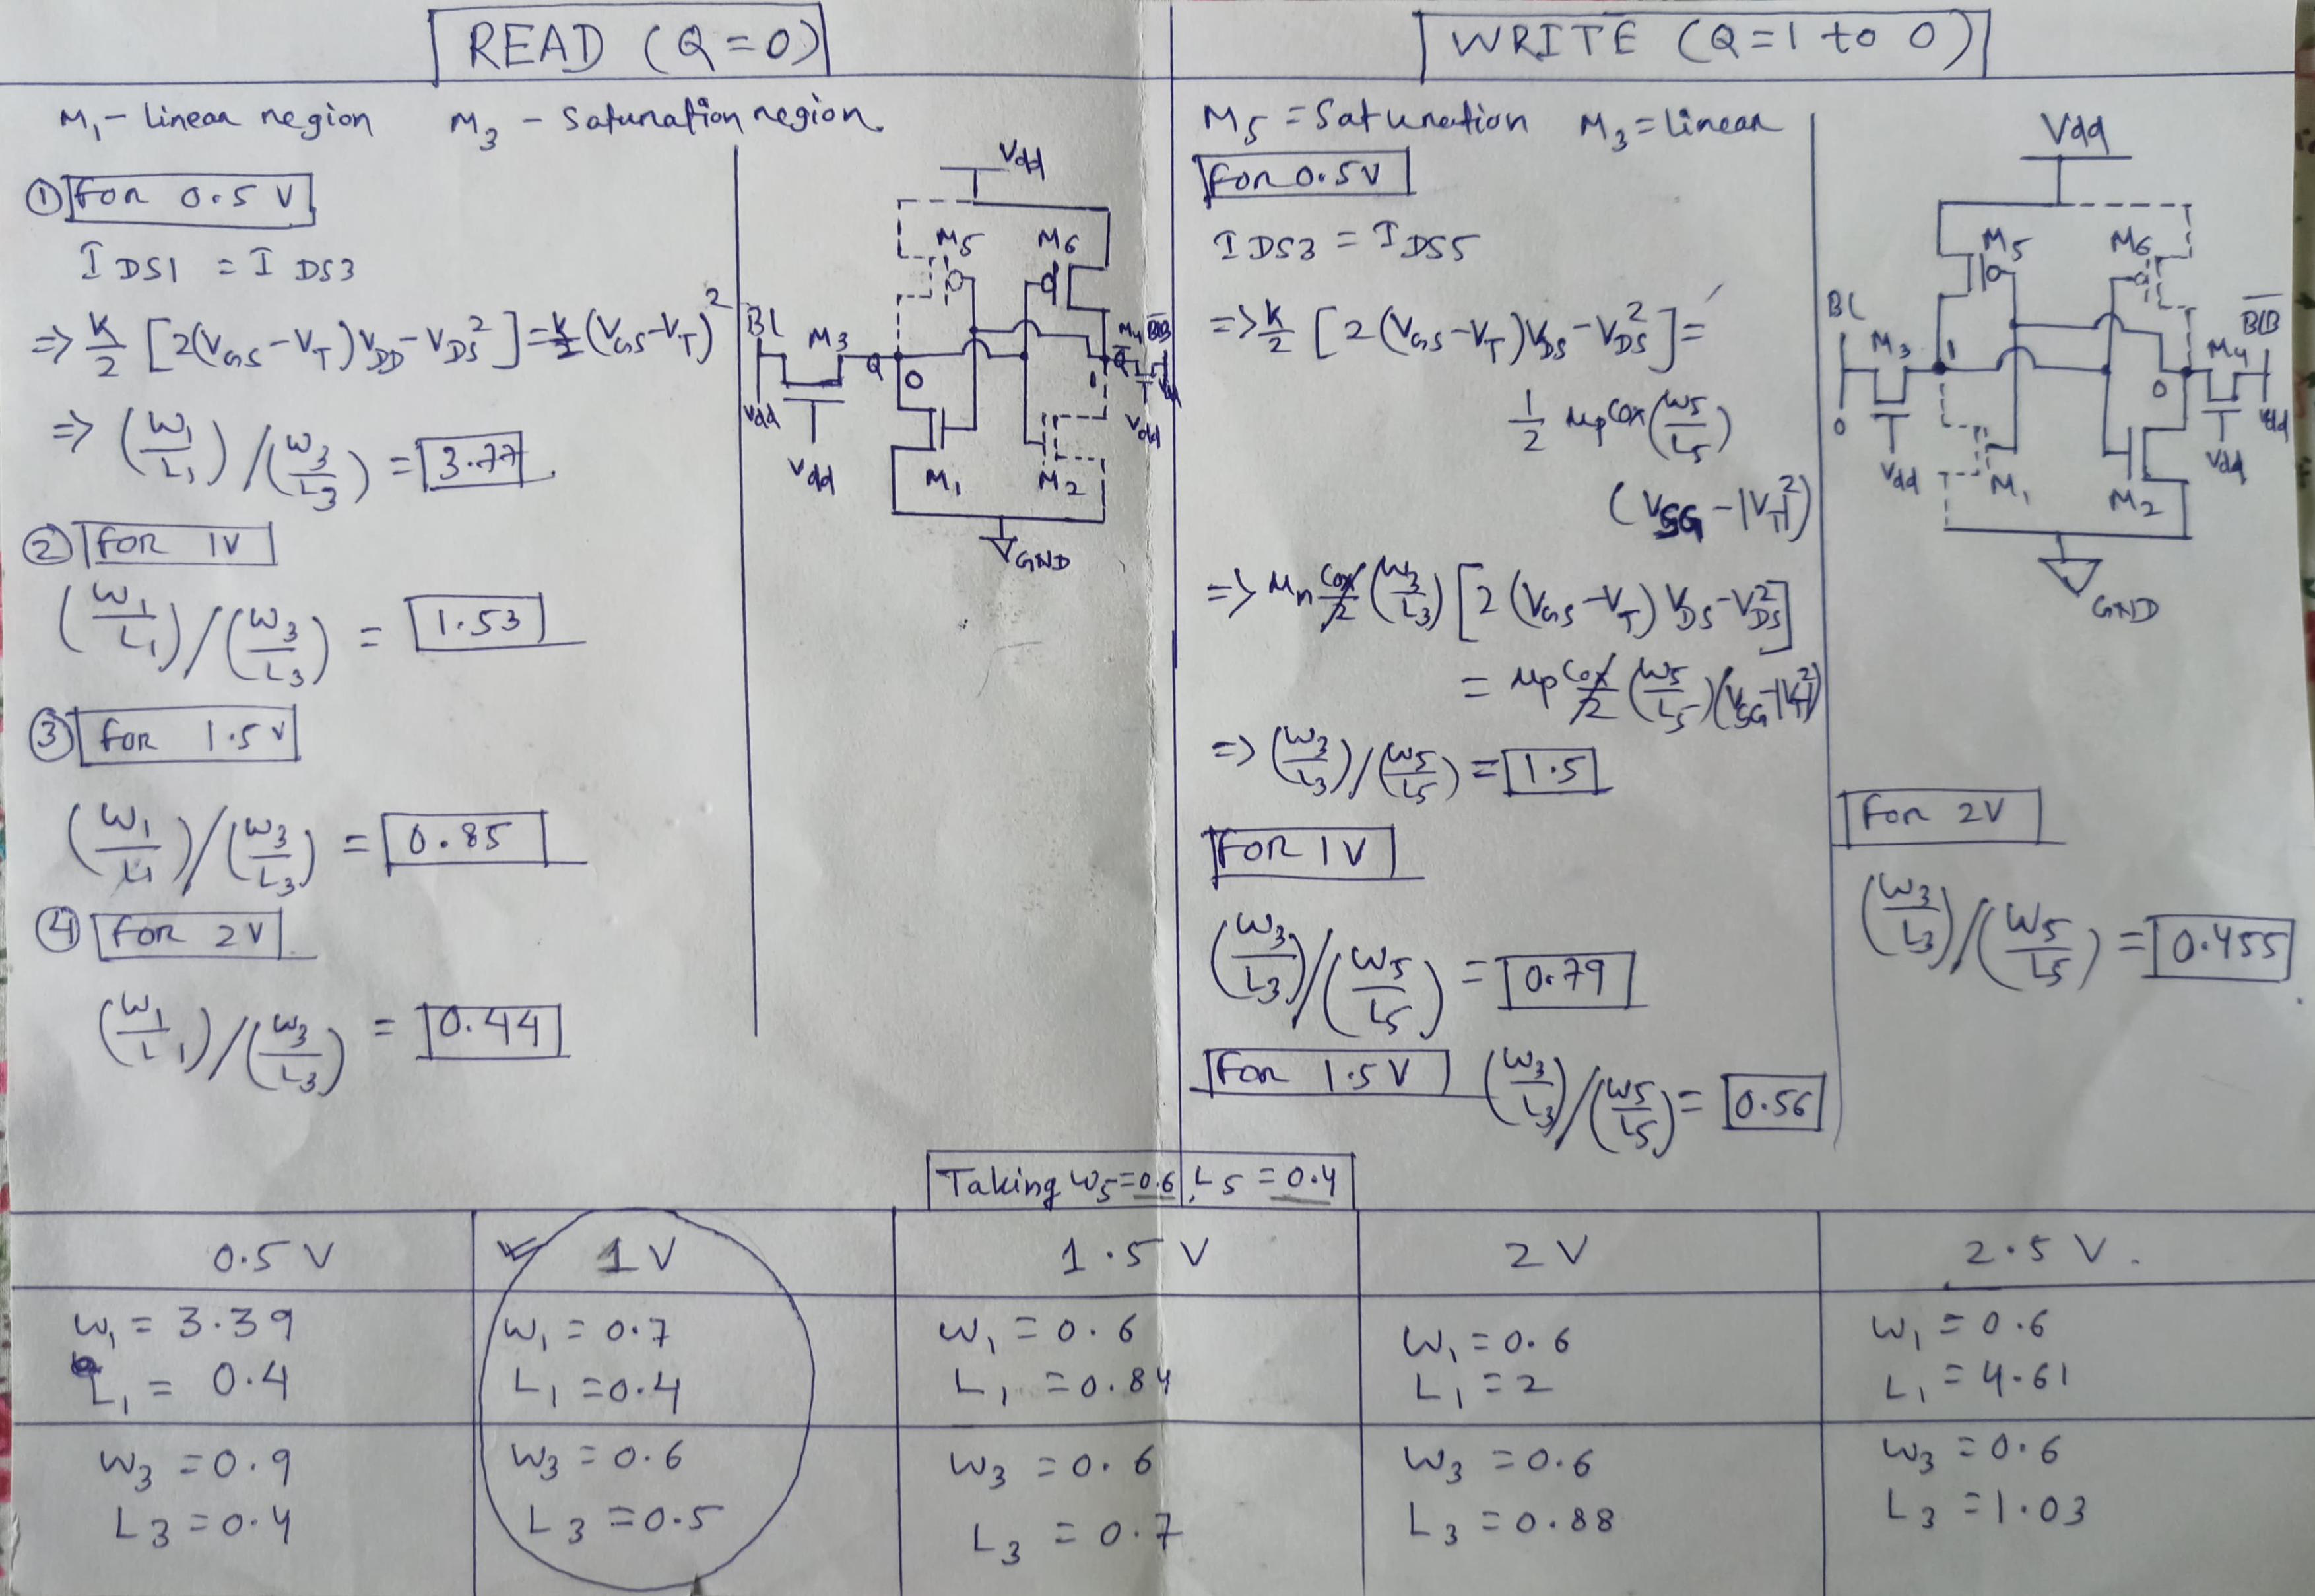 READ (Q=0)
M₁ - Linear region M₃ - Saturation region.
① For 0.5 V
I DS1 = I DS3
⇒ K/2 [2(VGS-VT)VDD-VDS²] = K/2 (VGS-VT)²
⇒ (W₁/L₁)/(W₃/L₃) = 3.77
② FOR 1V
(W₁/L₁)/(W₃/L₃) = 1.53
③ For 1.5V
(W₁/L₁)/(W₃/L₃) = 0.85
④ For 2V
(W₁/L₁)/(W₃/L₃) = 0.44
Vdd
M5 M6
BL M3 Q 0 1 Q̅ M4
Vdd Vdd Vdd
M1 M2
GND
WRITE (Q=1 to 0)
M5 = Saturation M3 = Linear
For 0.5V
I DS3 = I DS5
⇒ K/2 [2(VGS-VT)VDS-VDS²] =
1/2 μpCox(W5/L5)
(VSG-|VT|²)
⇒ μn Cox/2 (W3/L3) [2(VGS-VT) VDS-VDS²]
= μp Cox/2 (W5/L5)(VSG-|VT|²)
⇒ (W3/L3)/(W5/L5) = 1.5
FOR 1V
(W3/L3)/(W5/L5) = 0.79
For 1.5V (W3/L3)/(W5/L5) = 0.56
Vdd
M5 M6
BL M3 1 0 M4 B̅L̅B̅
0 Vdd Vdd Vdd
M1 M2
GND
For 2V
(W3/L3)/(W5/L5) = 0.455
Taking W5=0.6, L5=0.4
0.5 V 1V 1.5 V 2V 2.5 V.
W₁ = 3.39 W₁ = 0.7 W₁ = 0.6 W₁ = 0.6 W₁ = 0.6
L₁ = 0.4 L₁ = 0.4 L₁ = 0.84 L₁ = 2 L₁ = 4.61
W3 = 0.9 W3 = 0.6 W3 = 0.6 W3 = 0.6 W3 = 0.6
L3 = 0.4 L3 = 0.5 L3 = 0.7 L3 = 0.88 L3 = 1.03